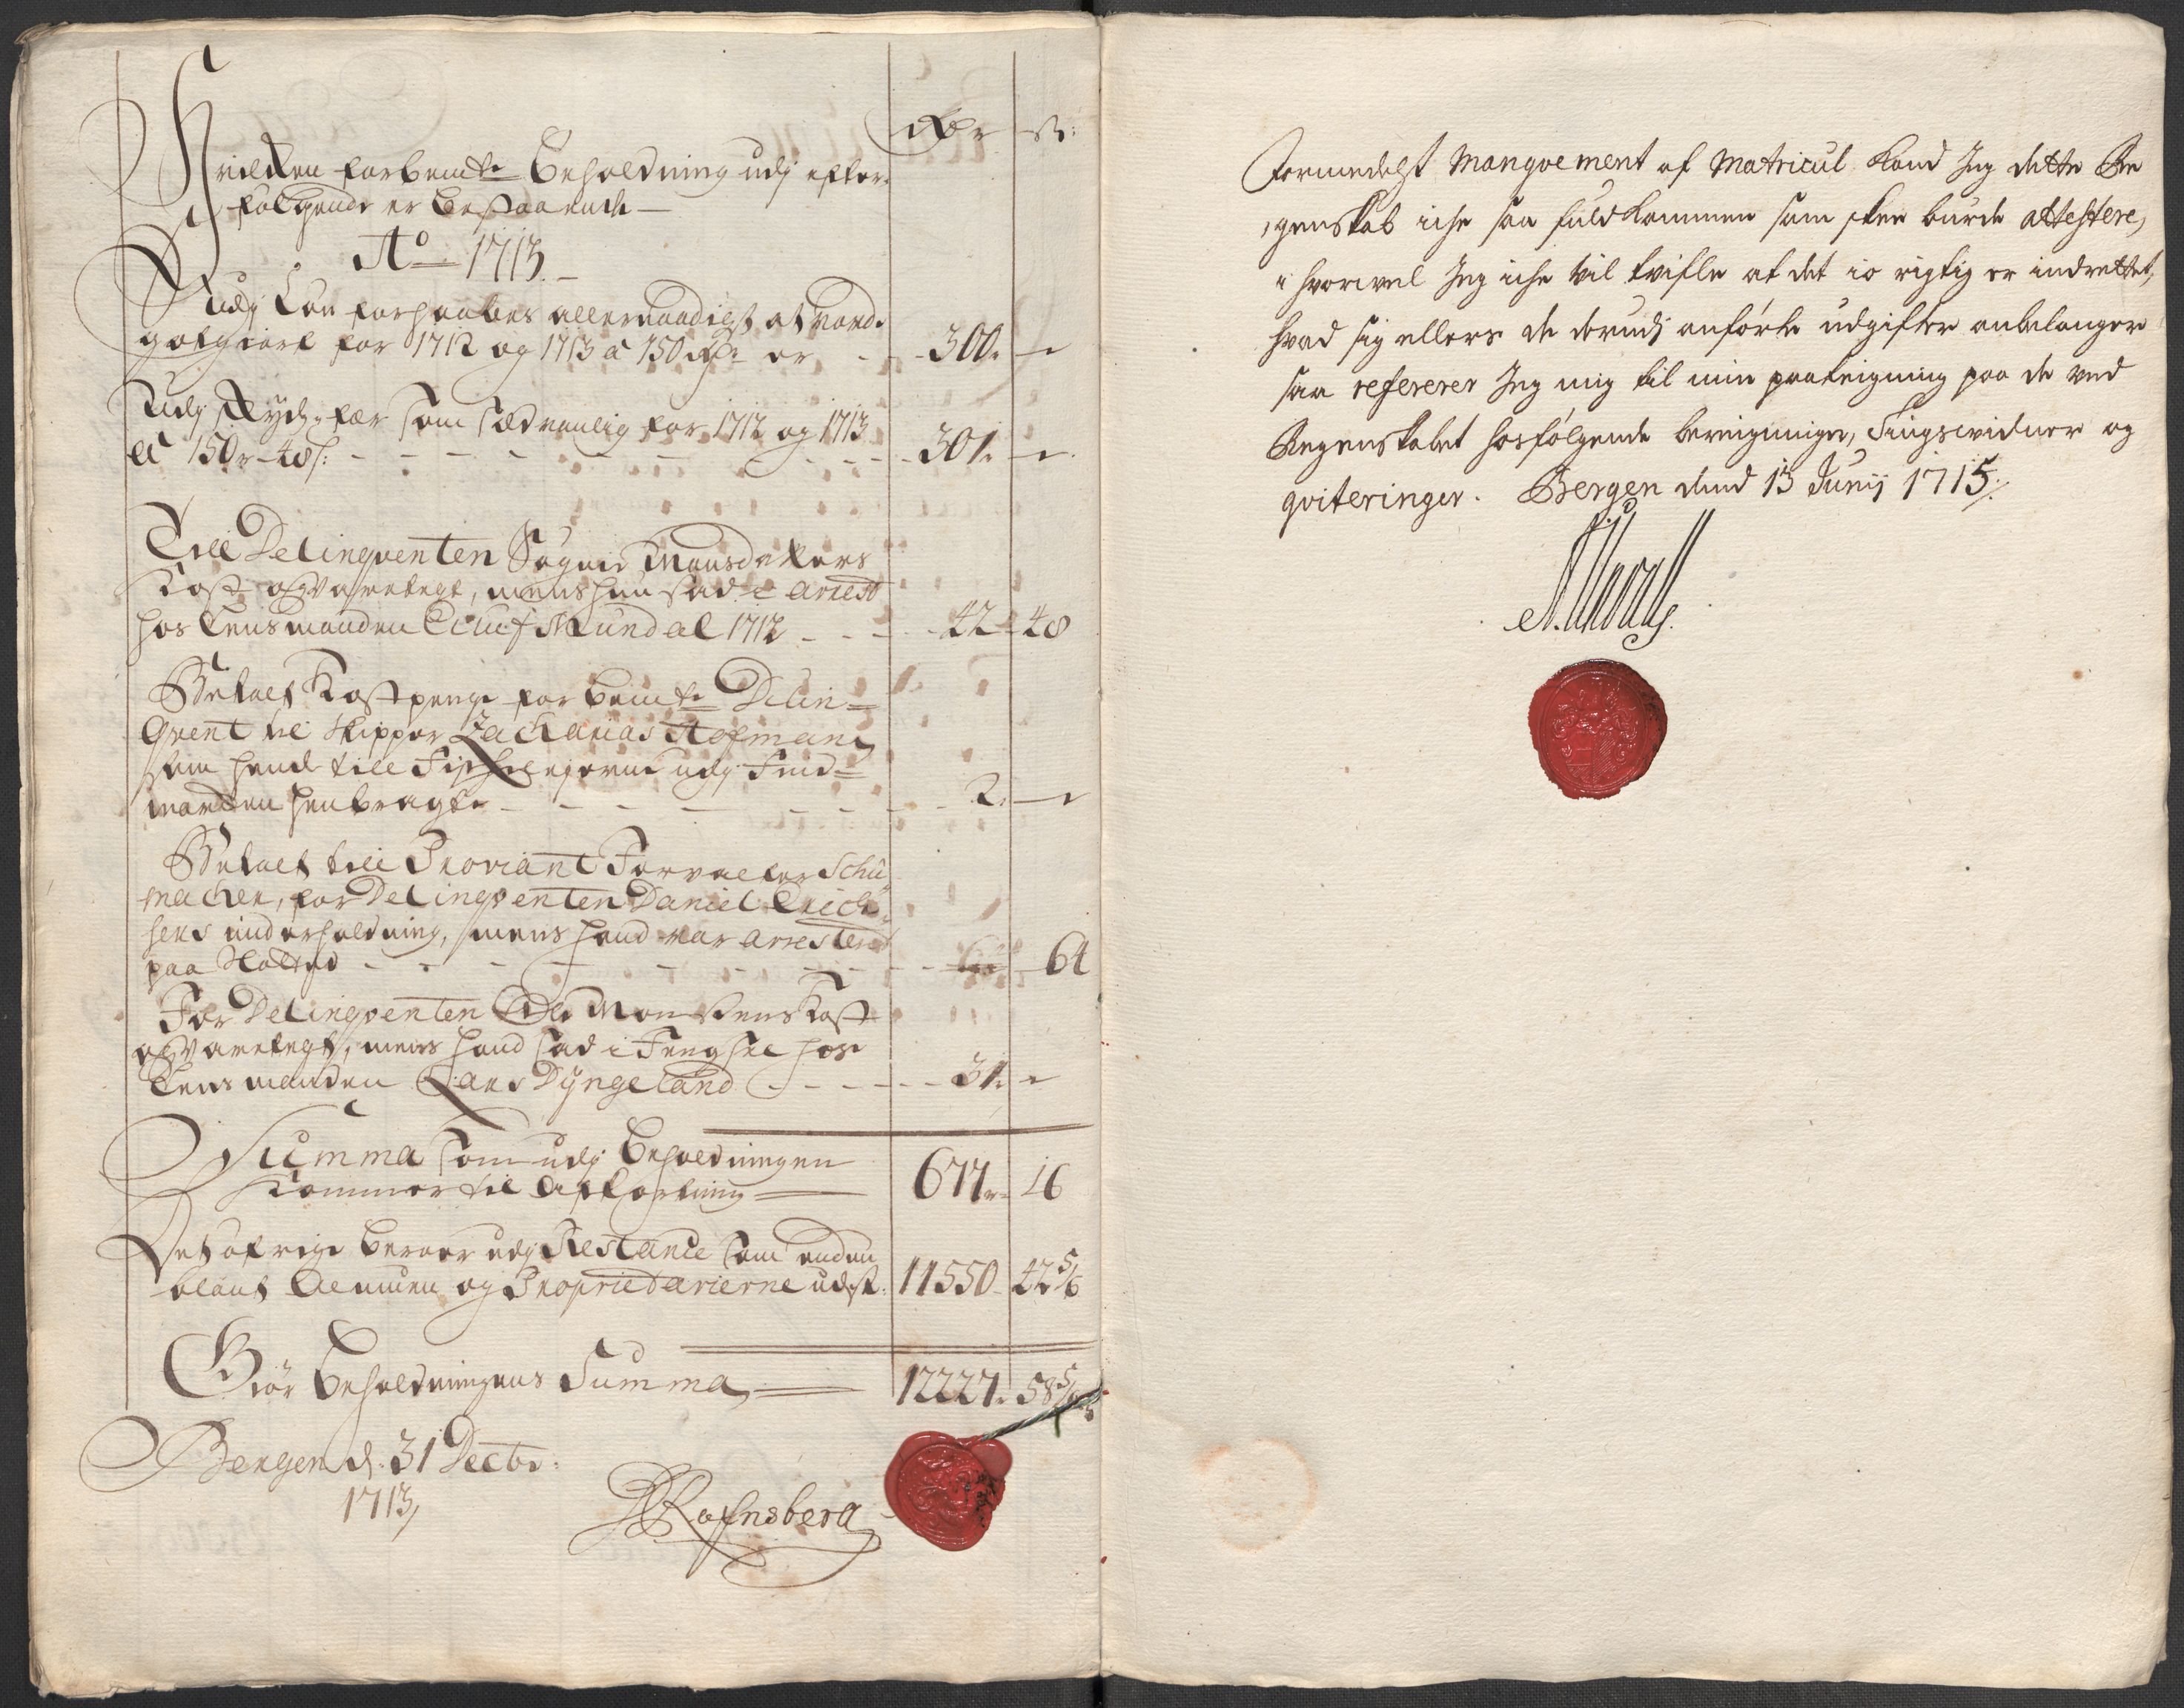 Rdr ß:
Hvilken forbemte Beholdning udj efter-
følgende er bestaaende
Ao 1713
Udj Løn forhaabes allernaadigst at vorde
gotgiort for 1712 og 1713 a 150 Rdr er 300
Udj Skydzfær som sædvanlig for 1712 og 1713
a 150 r 48 ß: 301
Till Delinqventen Mons
Kost og Varetegt, mens hun sad i Arrest
hos Lensmanden Mundal 1712 42 48
Betalt Kostpenge for bemte Delin-
qvent til Skipper Zacharias Hofmand
som hende till Fischerejerne udj Find-
marken henbragte 2
Betalt till Proviant Forvalter Schu-
macher, for Delinqventen Daniel Erich-
sens underholdning, mens hand var arresterit
paa 64
For Delinqventen Kost
og Varetegt, mens hand sad i Fengsel hos
Lensmanden Lars Dyngeland 31
Summa som udj Beholdningen
kommer til Afkortning 677 16
Det øfrige beroer udj Restance som endnu
blant Almuen og Proprietarierne udst: 11550 42 5/6
Giør Beholdningens Summa 12227 58 5/6
Bergen d: 31 Decbr:
1713
Rafnsberg
Formedelst Manqvement af Matricul Kand Jeg dette Re
genskab iche saa fuldkommen som skee burde attestere,
i hvorvel Jeg iche vil tvifle at det jo rigtig er indrettet,
hvad sig ellers de derudj anførte udgifter anbelanger
saa refererer Jeg mig til min paateigning paa de ved
Regenskabet hosfølgende bereigninger, Tingsvidner og
qviteringer. Bergen dend 13 Junij 1715